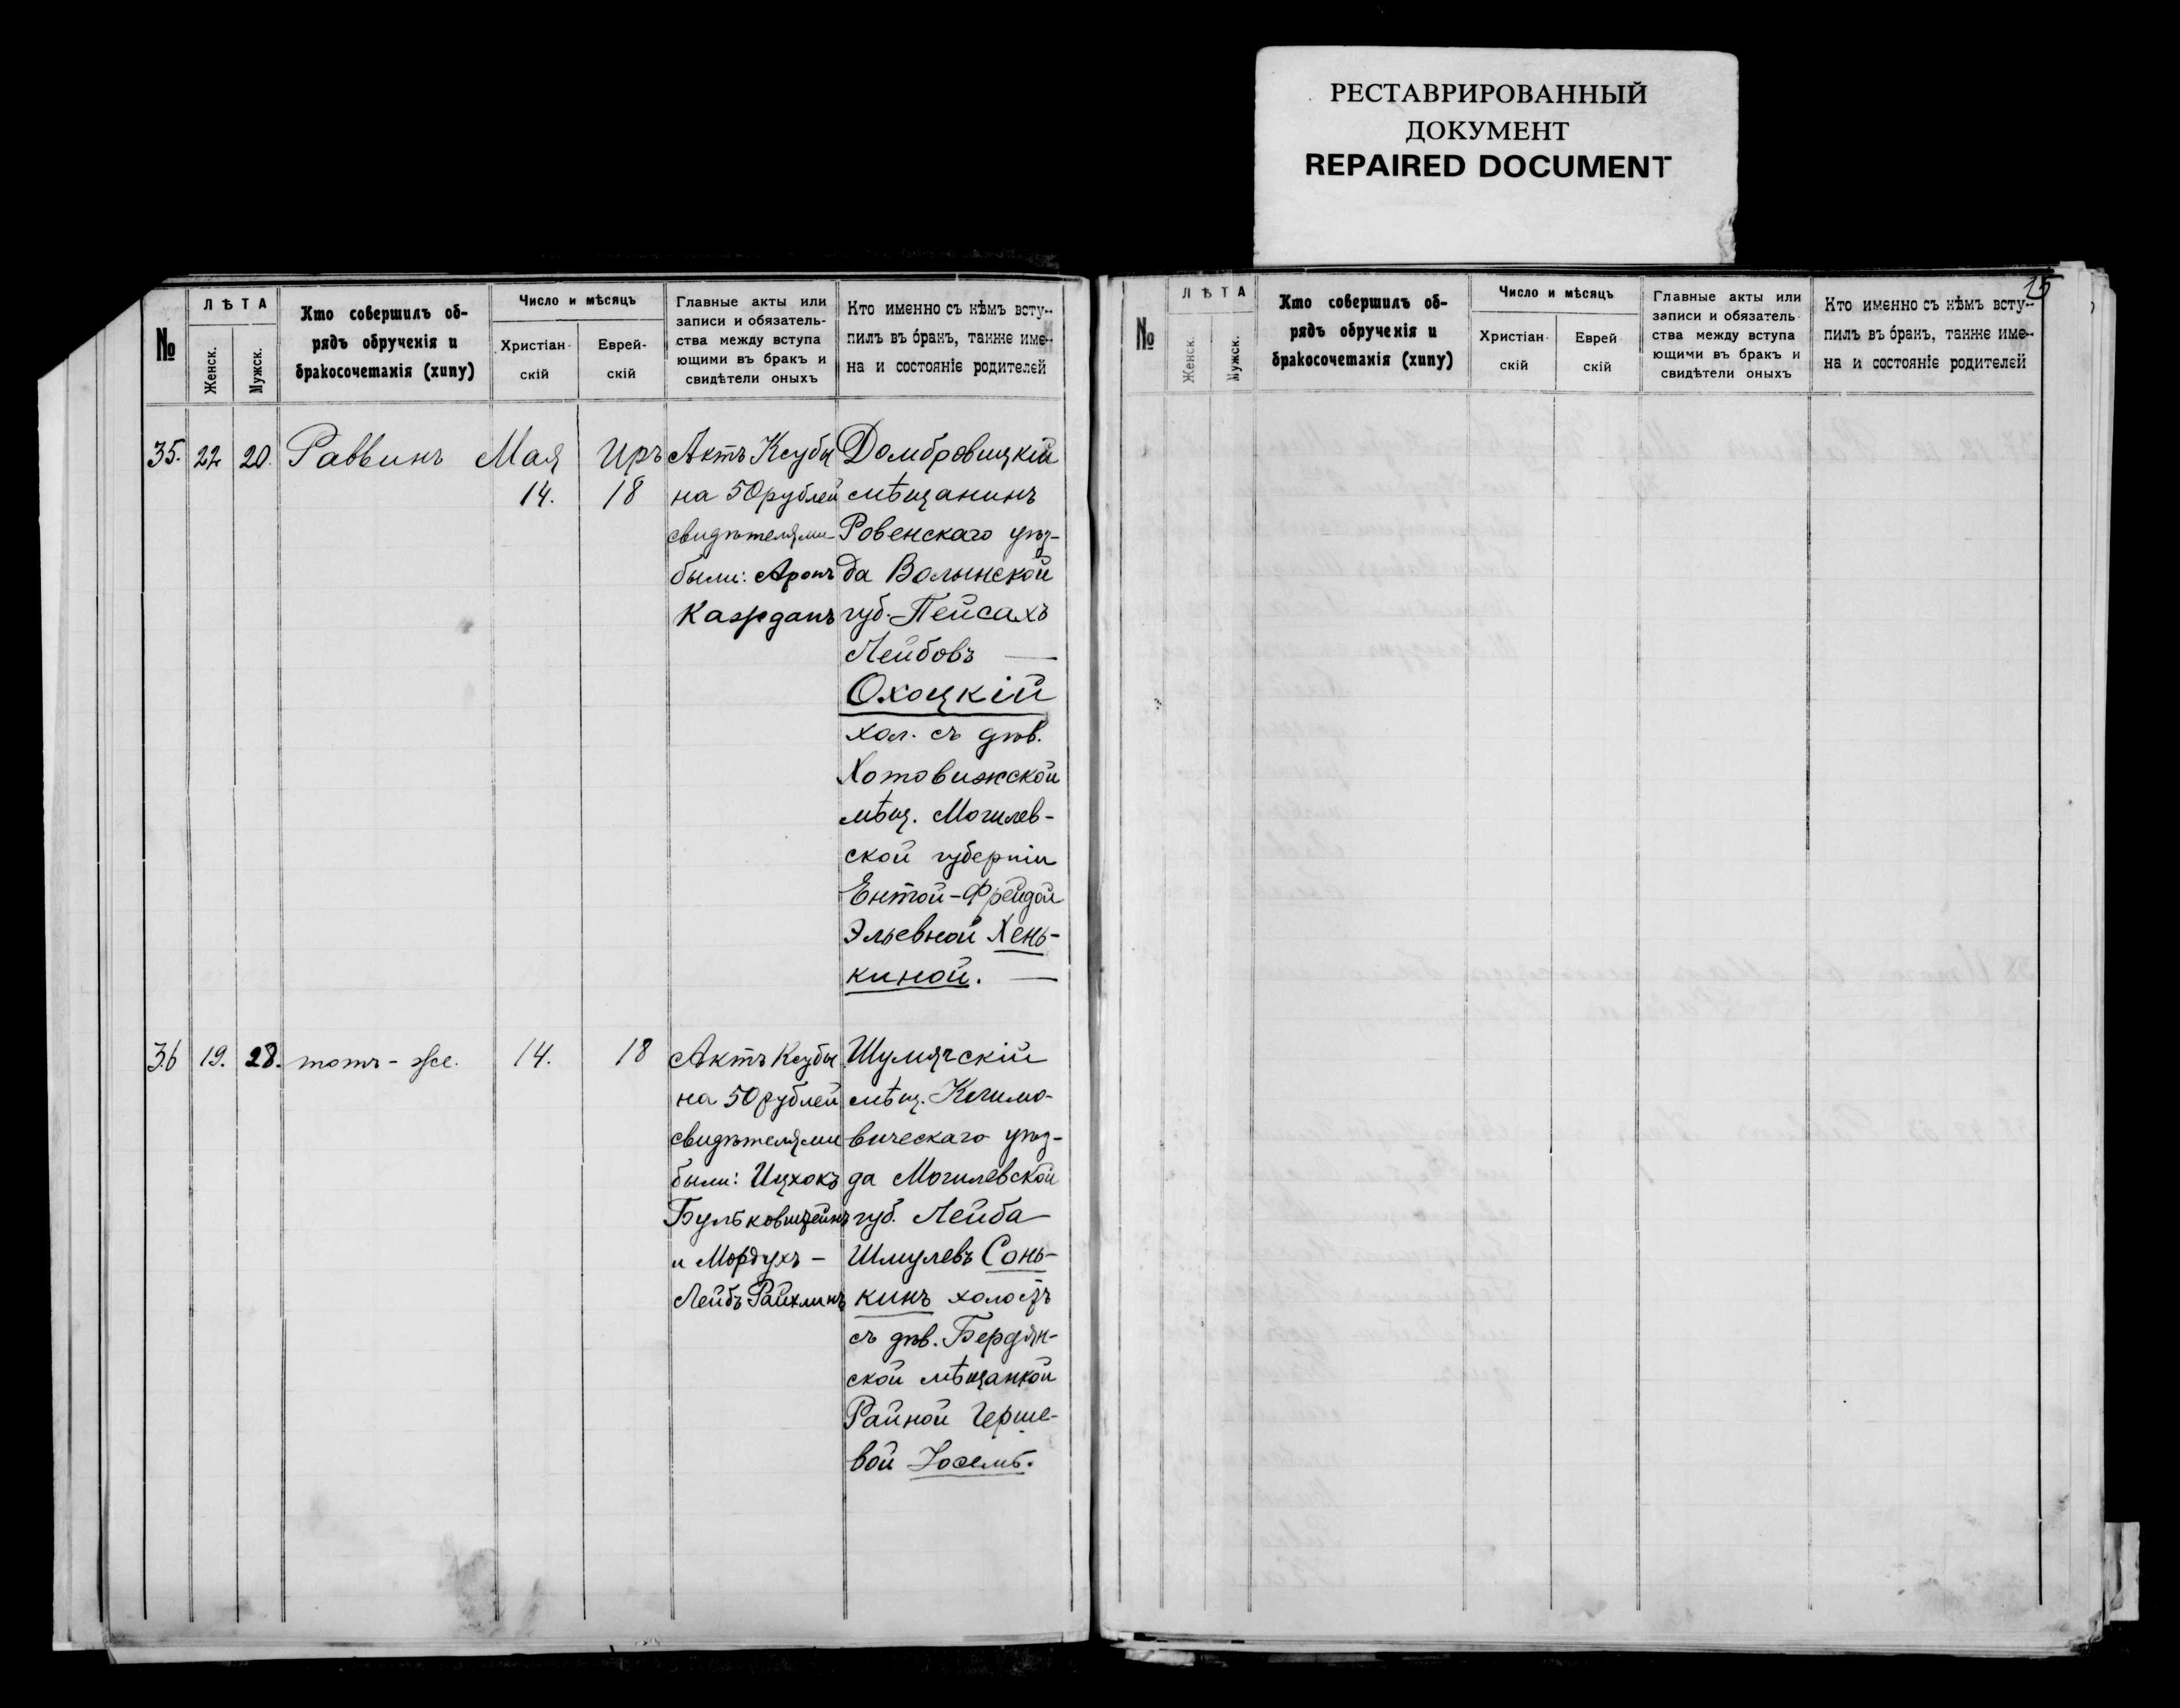 РЕСТАВРИРОВАННЫЙ
ДОКУМЕНТ
REPAIRED DOCUMENT
№
ЛѢТА
Женск.
Мужск.
Кто совершилъ об-
рядъ обрученія и
бракосочетанія (хипу)
Число и мѣсяцъ
Христіан-
скій
Еврей-
скій
Главные акты или
записи и обязатель-
ства между вступа
ющими въ бракъ и
свидѣтели оныхъ
Кто именно съ кѣмъ всту-
пилъ въ бракъ, также име-
на и состояніе родителей
35. 22 20. Раввинъ Мая 14. Иръ 18
Актъ Ксубы
на 50 рублей
свидѣтелями
были: Аронъ
Каждамъ
Домбровицкій
мѣщанинъ
Ровенскаго уѣз-
да Волынской
губ. Пейсахъ
Лейбовъ —
Охоцкій
хол. съ дѣв.
Хотовижской
мѣщ. Могилев-
ской губерніи
Ентой-Фрейдой
Эльевной Хень-
киной. —
36 19. 28. тотъ-же. 14. 18
Актъ Ксубы
на 50 рублей
свидѣтелями
были: Ицхокъ
и Мордухъ-
Лейбъ Райхлинъ
Шумячскій
мѣщ. Климо-
вическаго уѣз-
да Могилевской
губ. Лейба
Шмулевъ Сонь-
кинъ холостъ
съ дѣв. Бердян-
ской мѣщанкой
Райной Герше-
вой
15
№
ЛѢТА
Женск.
Мужск.
Кто совершилъ об-
рядъ обрученія и
бракосочетанія (хипу)
Число и мѣсяцъ
Христіан
скій
Еврей
скій
Главные акты или
записи и обязатель
ства между вступа
ющими въ бракъ и
свидѣтели оныхъ
Кто именно съ кѣмъ всту-
пилъ въ бракъ, также име-
на и состояніе родителей